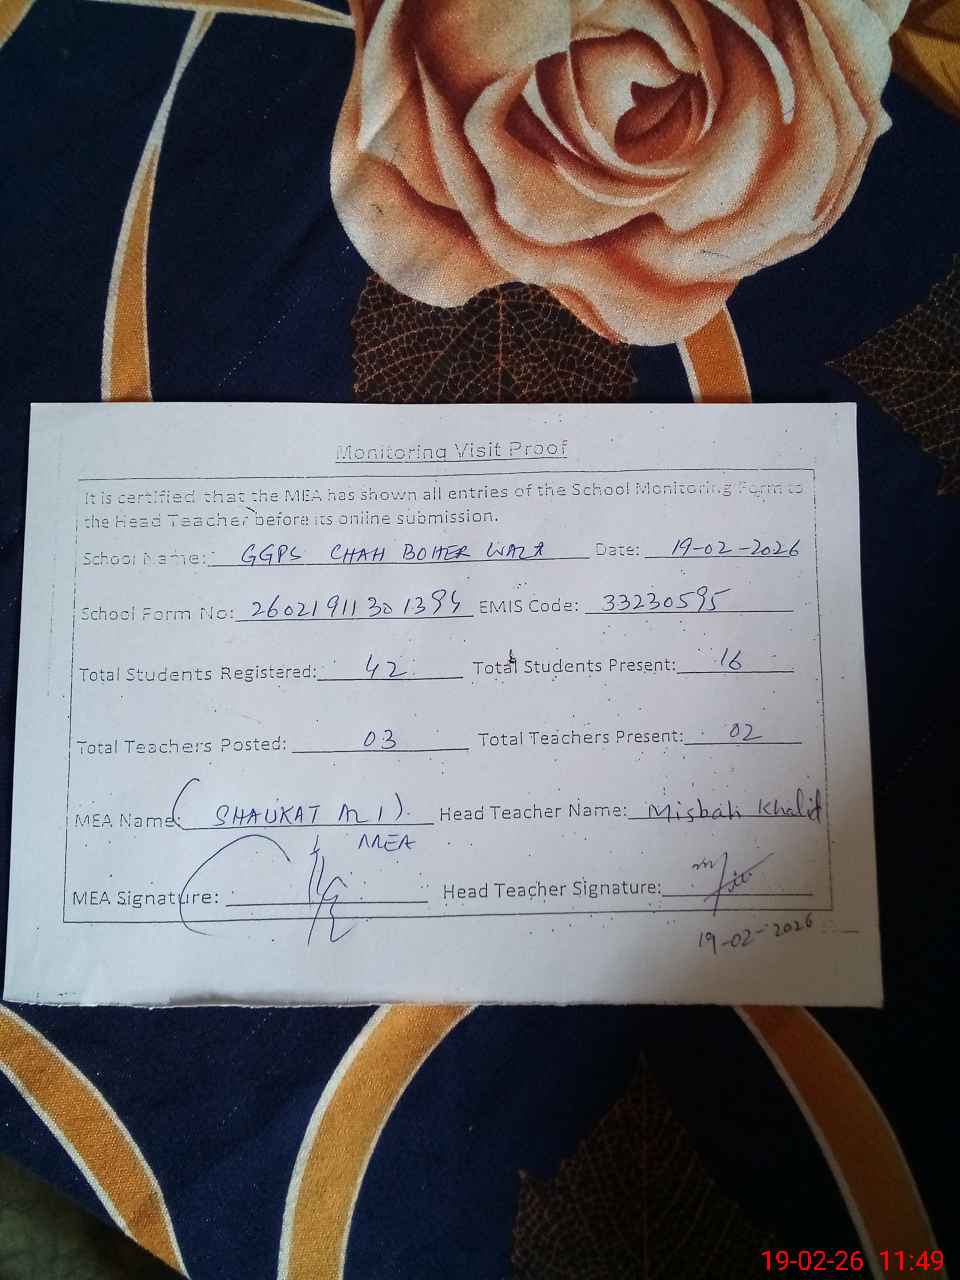 Monitoring Visit Proof
It is certified that the MEA has shown all entries of the School Monitoring Form to
the Head Teacher before its online submission.
School Name: GGPS CHAH BOHER WALA Date: 19-02-2026
School Form No: 26021911301394 EMIS Code: 33230595
Total Students Registered: 42 Total Students Present: 16
Total Teachers Posted: 03 Total Teachers Present: 02
MEA Name: (SHAUKAT ALI). Head Teacher Name: Misbah Khalid
MEA
MEA Signature: Head Teacher Signature:
19-02-2026
19-02-26 11:49